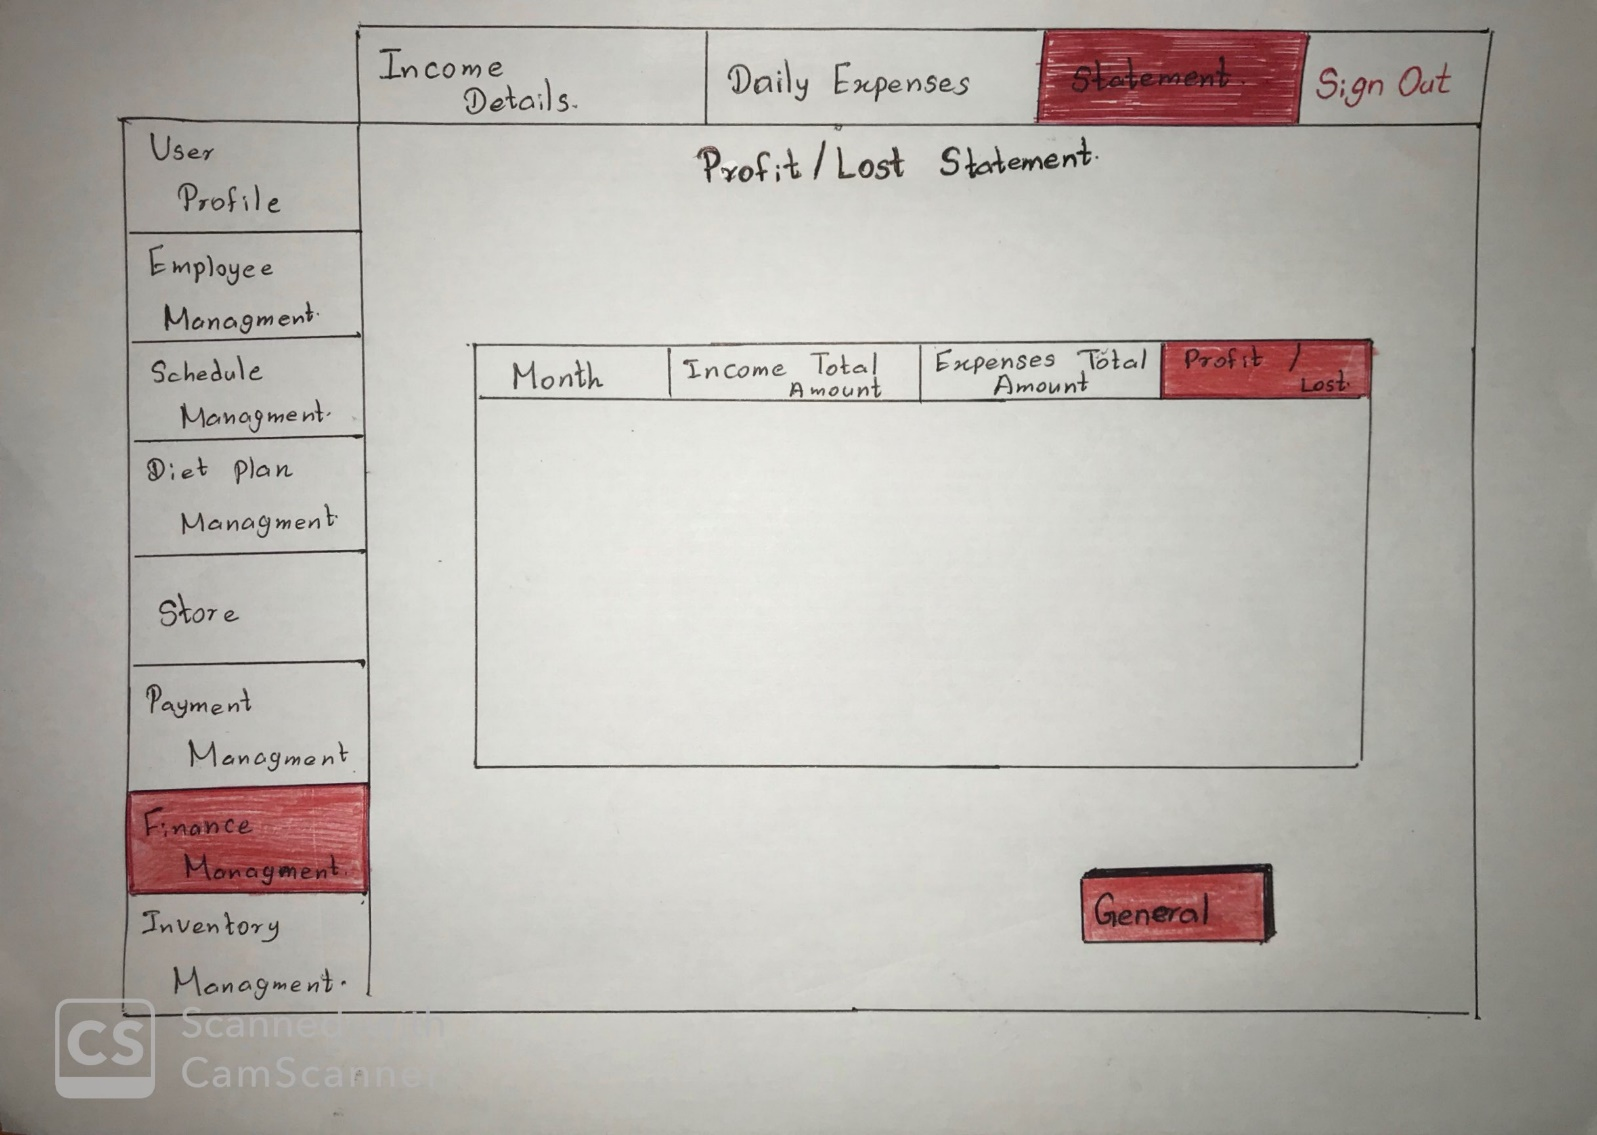 Income
Details.
Daily Expenses
Statement.
Sign Out
User
Profile
Employee
Managment.
Schedule
Managment.
Diet plan
Managment
Store
Payment
Managment
Finance
Managment.
Inventory
Managment.
Profit / Lost Statement.
Month
Income Total
Amount
Expenses Total
Amount
Profit /
Lost.
General
CS
Scanned with
CamScanner